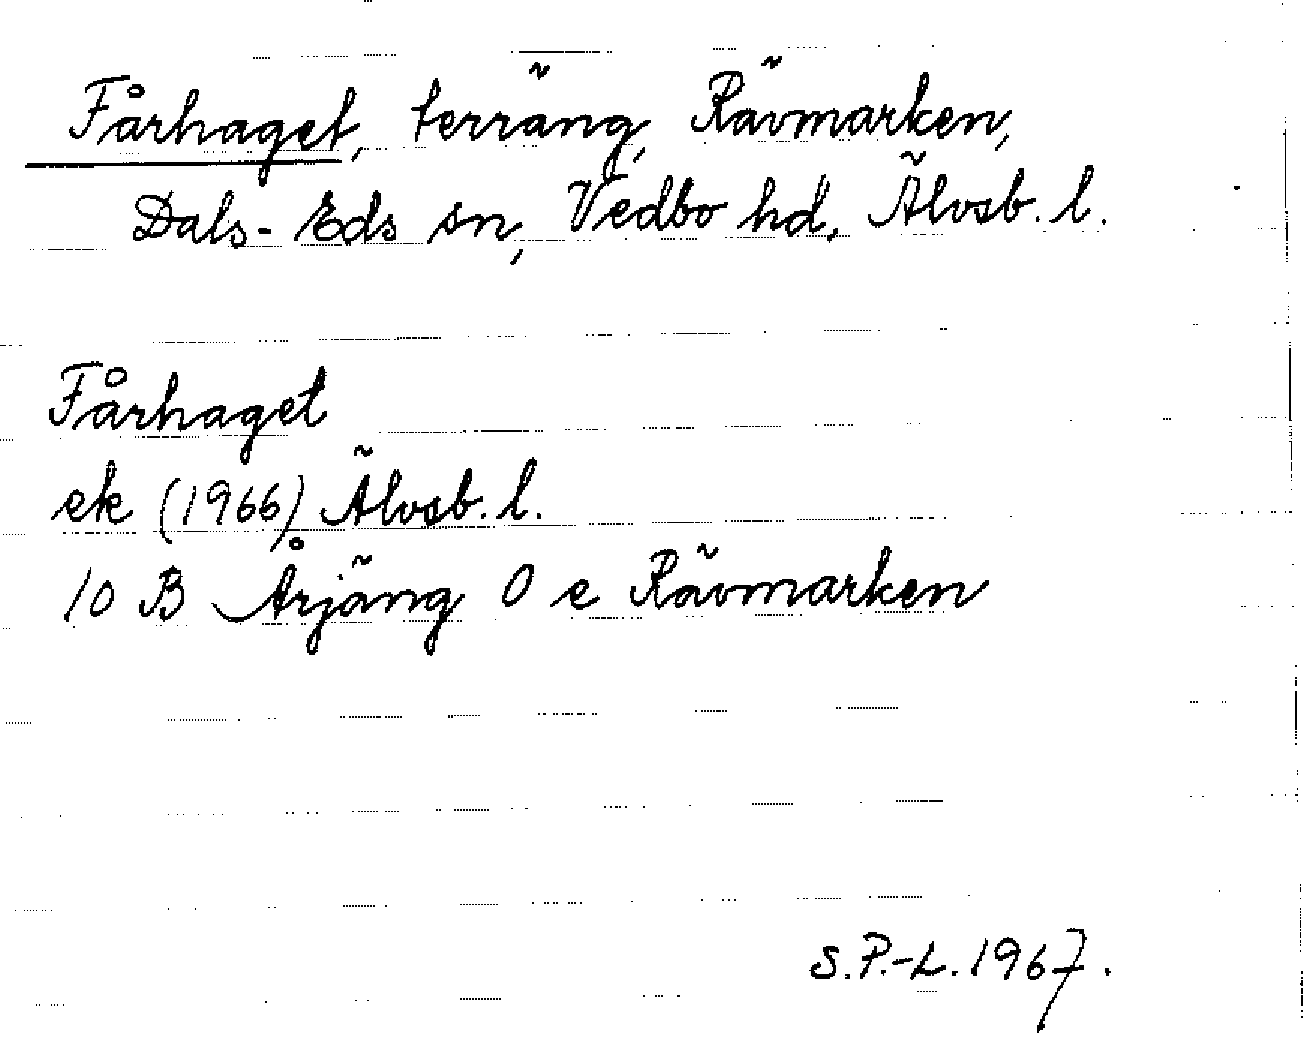 Fårhaget, terräng, Rävmarken,
Dals-Eds sn, Vedbo hd, Älvsb. l.
Fårhaget
ek (1966) Älvsb. l.
10 B Årjäng 0 e Rävmarken
S.P.-L. 1967.